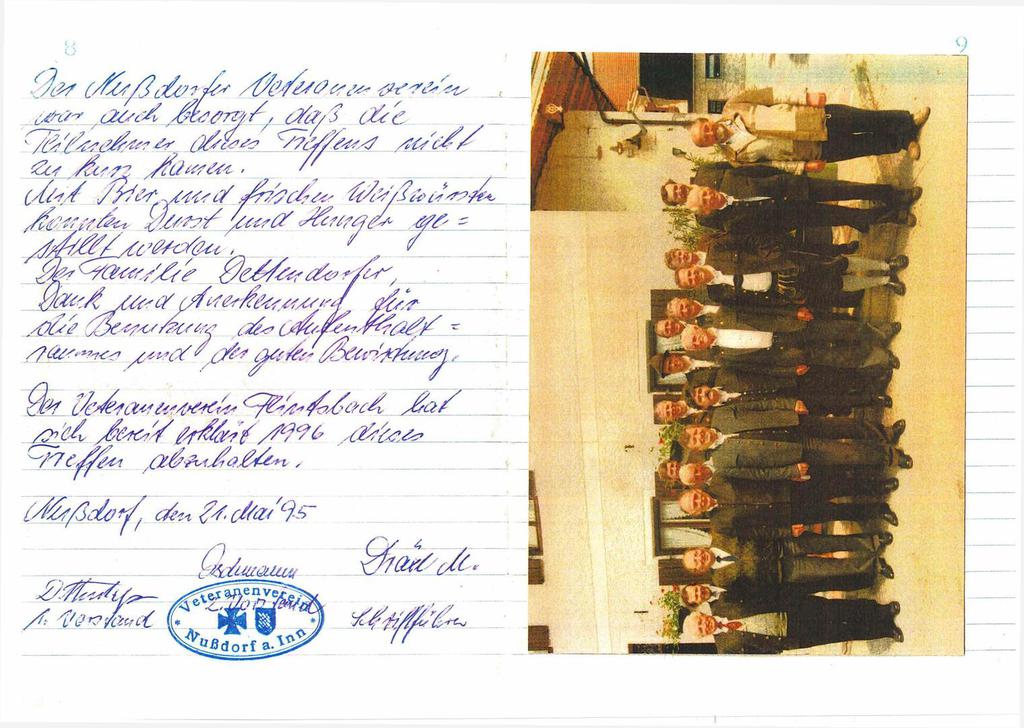 8
Der Nußdorfer Veteranenverein
war auch besorgt, daß die
Teilnehmer dieses Treffens nicht
zu kurz kamen.
Mit Bier und frischen Weißwürsten
konnten Durst und Hunger ge=
stillt werden.
Der Familie Dettendorfer,
Dank und Anerkennung für
die Benutzung des Aufenthalt=
raumes und der guten Bewirtung.
Der Veteranenverein Flintsbach hat
sich bereit erklärt 1996 dieses
Treffen abzuhalten.
Nußdorf, den 21. Mai 95
1. Vorstand
2. Vorstand
Schriftführer
Veteranenverein
Nußdorf a. Inn
9